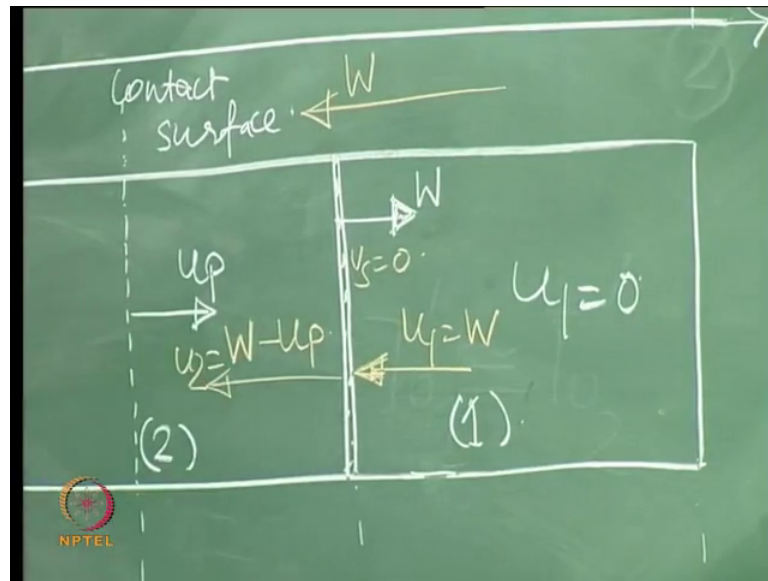 Contact
surface.
W
W
Up
Vs=0.
U1=0
U2=W-Up.
U1=W
(2)
(1).
NPTEL